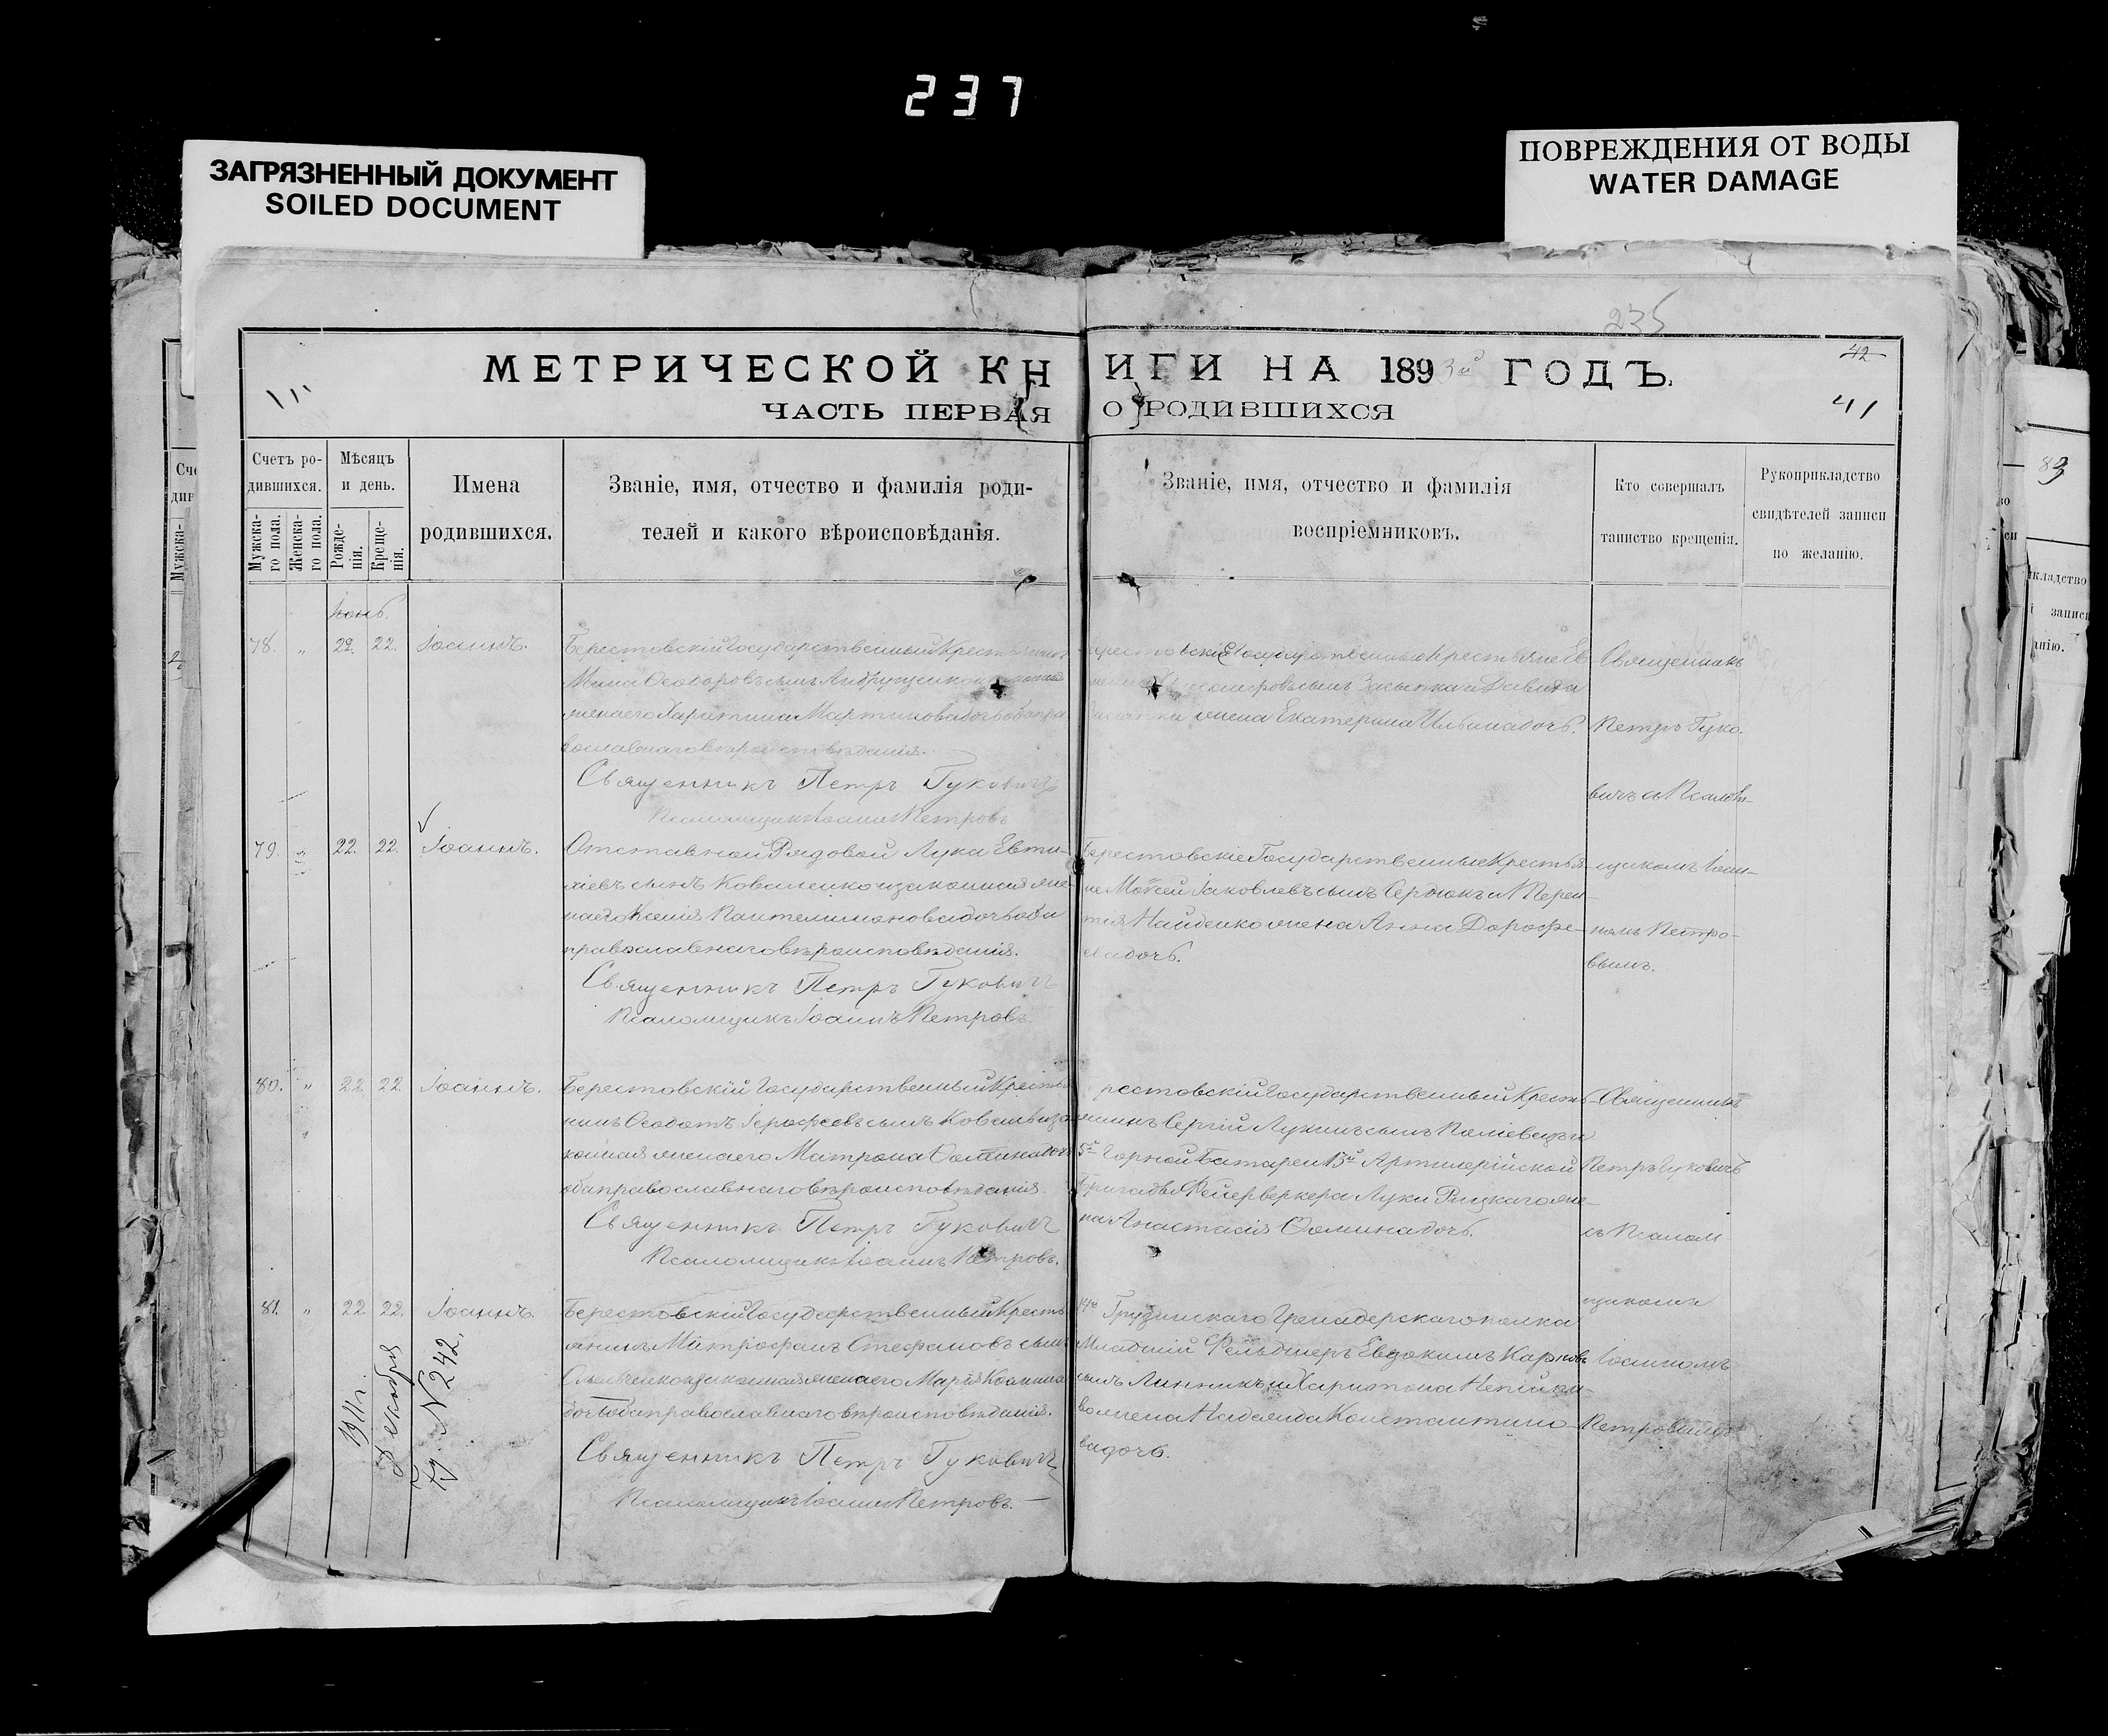 237
ЗАГРЯЗНЕННЫЙ ДОКУМЕНТ
SOILED DOCUMENT
ПОВРЕЖДЕНИЯ ОТ ВОДЫ
WATER DAMAGE
235
МЕТРИЧЕСКОЙ КНИГИ НА 1893й ГОДЪ.
42
ЧАСТЬ ПЕРВАЯ О РОДИВШИХСЯ
41
Счетъ ро-
дившихся.
Мужска-
го пола.
Женска-
го пола.
Мѣсяцъ
и день.
Рожде-
нія.
Креще-
нія.
Имена
родившихся.
Званіе, имя, отчество и фамилія роди-
телей и какого вѣроисповѣданія.
Званіе, имя, отчество и фамилія
воспріемниковъ.
Кто совершалъ
таинство крещенія.
Рукоприкладство
свидѣтелей записи
по желанію.
Іюнь.
78. " 22. 22. Іоаннъ.
Берестовскій Государственный Крестьянинъ
Мина Ѳеодоровъ сынъ
жена его Харитина Мартинова дочь оба пра
вославнаго вѣроисповѣданія.
Священникъ Петръ Гуковичъ
Псаломщикъ Іоаннъ Петровъ
Государственные Крестьяне
сынъ Засыпка и Давида
жена Екатерина Ильина дочь.
Священникъ
Петръ Гуко-
вичъ съ Псалом-
щикомъ Іоан-
номъ Петро-
вымъ.
79. " 22. 22. Іоаннъ.
Отставной Рядовой Лука Евти-
хіевъ сынъ Коваленко и законная же-
на его Ксенія Пантелимонова дочь оба
православнаго вѣроисповѣданія.
Священникъ Петръ Гуковичъ
Псаломщикъ Іоаннъ Петровъ.
Берестовскіе Государственные Крестья
не Моѵсей Іаковлевъ сынъ Сердюкъ и
Найденко жена Анна Дорофе-
ева дочь.
80. " 22 22 Іоаннъ.
Берестовскій Государственный Крестья
нинъ Ѳеодотъ Іерофеевъ сынъ Коваль и за
конная жена его Матрона Ѳомина дочь
оба православнаго вѣроисповѣданія.
Священникъ Петръ Гуковичъ
Псаломщикъ Іоаннъ Петровъ.
рестовскій Государственный Кресть-
янинъ Сергій Лукинъ сынъ и
5й Горной Батареи 13й Артилерійской
Бригады Фейерверкера Луки Рицкаго же-
на Анастасія Ѳомина дочь.
Священникъ
Петръ Гуковичъ
съ Псалом
щикомъ
Іоанномъ
Петровымъ
81. " 22. 22. Іоаннъ.
Берестовскій Государственный Кресть
янинъ Митрофанъ Стефановъ сынъ
Омельченко и законная жена его Марія Іоаннова
дочь оба православнаго вѣроисповѣданія.
Священникъ Петръ Гуковичъ
Псаломщикъ Іоаннъ Петровъ.
14го Грузинскаго Гренадерскаго полка
Младшій Фельдшеръ Евдокимъ Карповъ
сынъ Линникъ и Харитона
жена Надежда Константино
ва дочь.
1911 г.
Декабря
№ 242.